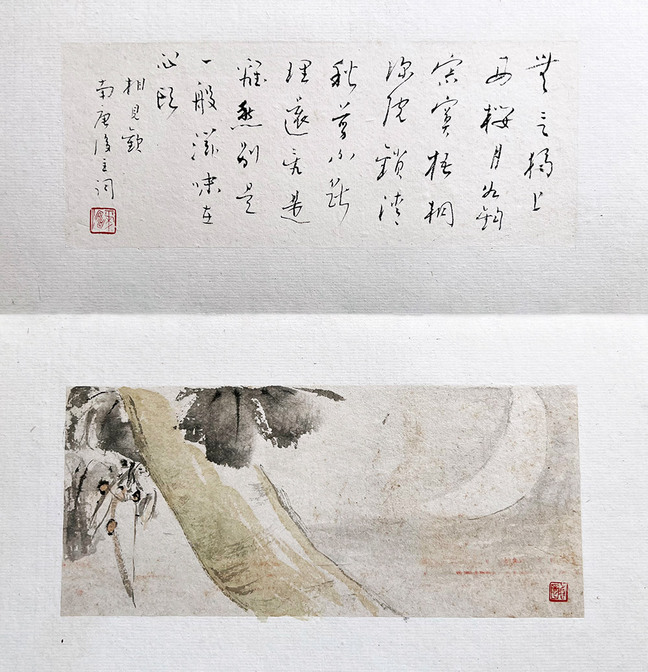 無言獨上
西樓月如鉤
寂寞梧桐
深院鎖清
秋剪不斷
理還亂是
離愁別是
一般滋味在
心頭
相見歡
南唐後主詞